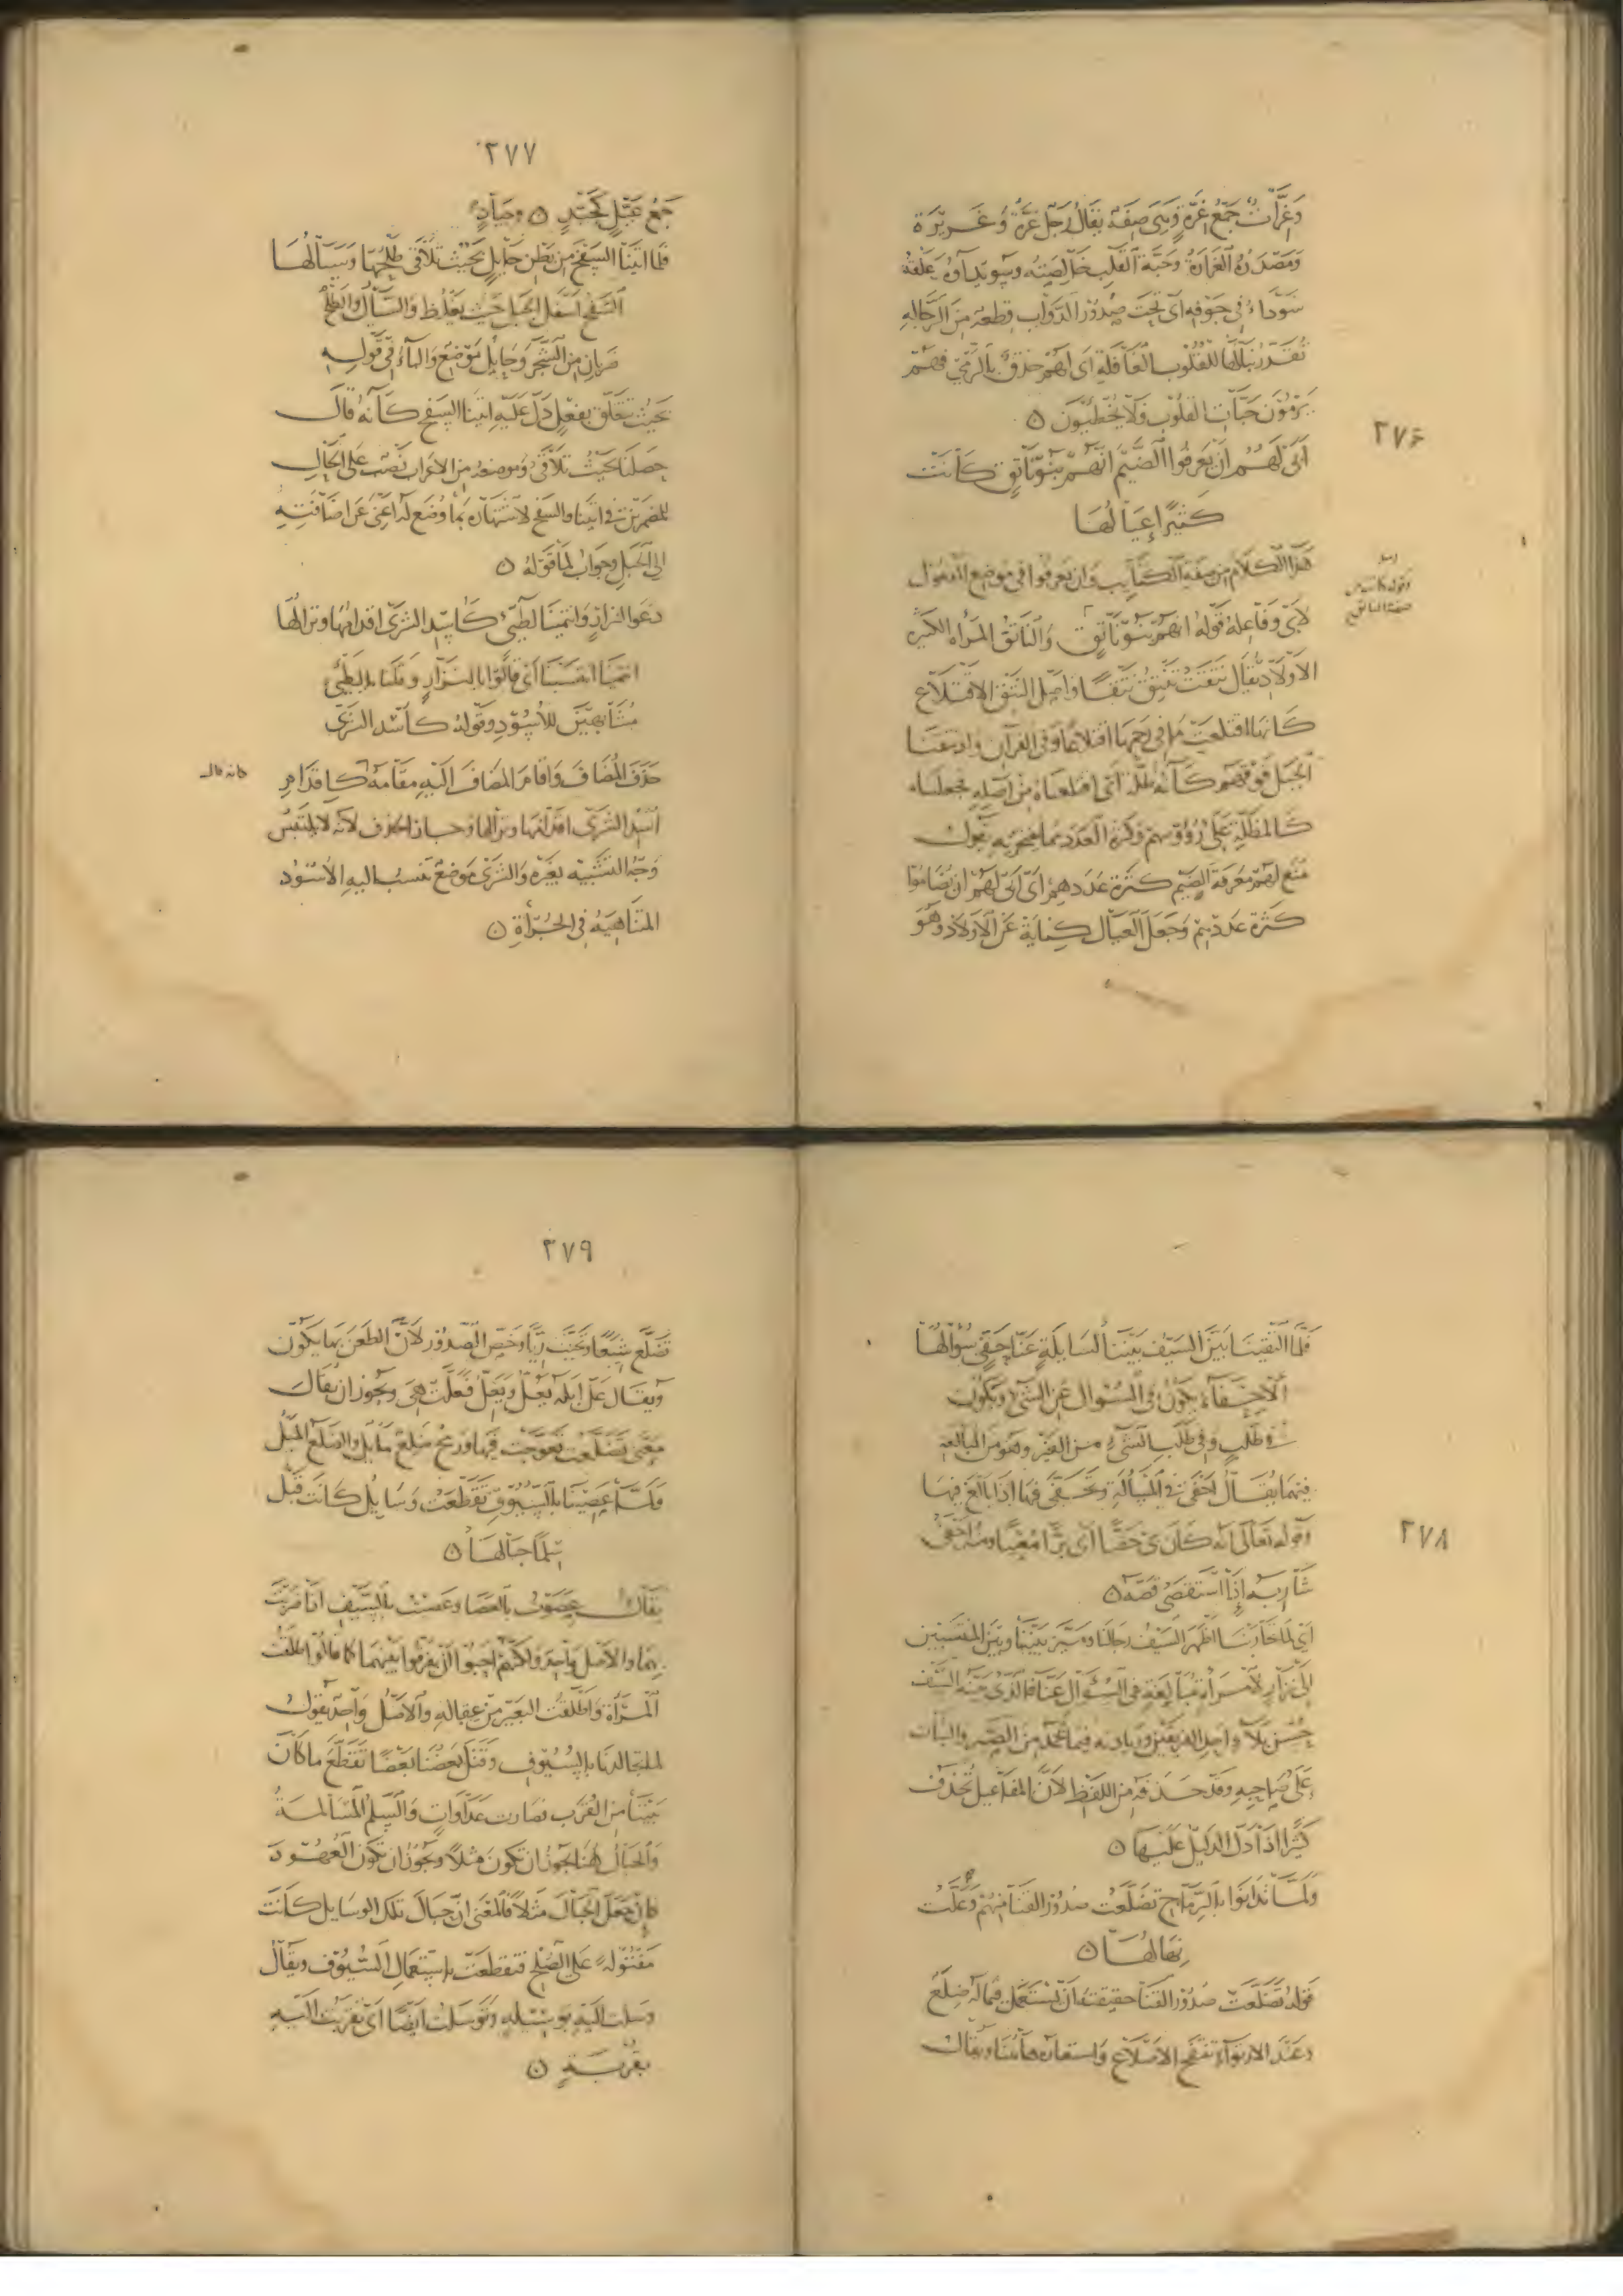 ٢٧٦
وَغِرَّاتٌ جَمْعُ غِرَّةٍ وَهِيَ صِفَةٌ يُقَالُ رَجُلٌ غِرَّةٌ وَغَرِيرَةٌ
وَمَصْدَرُهُ الْغَرَارَةُ وَحَبَّةُ الْقَلْبِ خَالِصَتُهُ وَسُوَيْدَاؤُهُ عَلَقَةٌ
سَوْدَاءُ فِي جَوْفِهِ أي تحت صُدُورِ الدَّوَابِّ قِطْعَةٌ مِنَ الرَّجَّالَةِ
تُقَدِّرُ نِبَالَهَا لِلْقُلُوبِ الْغَافِلَةِ أَي لَهُمْ حِذْقٌ بِالرَّمْيِ فَهُمْ
يَرْمُونَ حَبَّاتِ الْقُلُوبِ فَلَا يُخْطِئُونَ ۝
أَبَى لَهُمْ أَنْ يَعْرِفُوا الضَّيْمَ أَنَّهُمْ بَنُو نَاتِقٍ كَانَتْ
كَثِيرًا عِيَالُهَا
هَذَا الْكَلَامُ مِنْ صِفَةِ الْكَتَايِبِ وَأَنْ يَعْرِفُوا فِي مَوْضِعِ الْمَفْعُولِ
لِأَبَى وَفَاعِلُهُ قَوْلُهُ أَنَّهُمْ بَنُو نَاتِقٍ وَالنَّاتِقُ الْمَرْأَةُ الْكَثِيرَةُ
الْأَوْلَادِ يُقَالُ نَتَقَتْ تَنْتِقُ نَتْقًا وَأَصْلُ النَّتْقِ الِاقْتِلَاعُ
كَأَنَّهَا اقْتَلَعَتْ مَا فِي رَحِمِهَا اقْتِلَاعًا وَفِي الْقُرْآنِ وَإِذْ نَتَقْنَا
الْجَبَلَ فَوْقَهُمْ كَأَنَّهُ ظُلَّةٌ أَي اقْتَلَعْنَاهُ مِنْ أَصْلِهِ فَجَعَلْنَاهُ
كَالْمِظَلَّةِ عَلَى رُؤُوسِهِمْ وَكَثْرَةُ الْعَدَدِ مِمَّا يُفْتَخَرُ بِهِ يَقُولُ
مَنَعَ لَهُمْ مَعْرِفَةَ الضَّيْمِ كَثْرَةُ عَدَدِهِمْ أَيْ أَبَى لَهُمْ أَنْ يُضَامُوا
كَثْرَةُ عَدَدِهِمْ وَجَعَلَ الْعِيَالَ كِنَايَةً عَنِ الْأَوْلَادِ وَهُوَ
٢٧٧
جَمْعُ عَيِّلٍ كَجَيِّدٍ ۝ وَجِيَادٍ
فَلَمَّا أَتَيْنَا السَّفْحَ مِنْ بَطْنِ حَايِلٍ بِحَيْثُ تَلَاقَى طَلْحُهَا وَسَيَالُهَا
السَّفْحُ أَسْفَلُ الْجَبَلِ حَيْثُ يَغْلُظُ وَالسَّيَالُ وَالطَّلْحُ
ضَرْبَانِ مِنَ الشَّجَرِ وَحَايِلٌ مَوْضِعٌ وَالْبَاءُ فِي قَوْلِهِ
بِحَيْثُ تَتَعَلَّقُ بِفِعْلٍ دَلَّ عَلَيْهِ أَتَيْنَا السَّفْحَ كَأَنَّهُ قَالَ
حَصَلْنَا بِحَيْثُ تَلَاقَى وَمَوْضِعُهُ مِنَ الْإِعْرَابِ نَصْبٌ عَلَى الْحَالِ
للمضمرين في أتينا والسفح لاشتهاره بما وُضِعَ لَهُ أَغْنَى عَنْ إِضَافَتِهِ
إِلَى الْجَبَلِ وَجَوَابُ لَمَّا قَوْلُهُ ۝
دَعَوْا لِنِزَارٍ وَانْتَمَيْنَا لِطَيِّئٍ كَأُسْدِ الشَّرَى إِقْدَامُهَا وَنِزَالُهَا
انْتَمَيْنَا انْتَسَبْنَا أَيْ قَالُوا يَا لَنِزَارٍ وَقُلْنَا يَا لَطَيِّئٍ
مُشَابِهِينَ لِلْأُسُودِ وَقَوْلُهُ كَأُسْدِ الشَّرَى
حَذَفَ الْمُضَافَ وَأَقَامَ الْمُضَافَ إِلَيْهِ مَقَامَهُ كَإِقْدَامِ
كأنه قال
أُسْدِ الشَّرَى إِقْدَامُهَا وَنِزَالُهَا وَجَازَ الْحَذْفُ لِأَنَّهُ لَا يَلْتَبِسُ
وَجْهُ التَّشْبِيهِ بِغَيْرِهِ وَالشَّرَى مَوْضِعٌ تُنْسَبُ إِلَيْهِ الْأُسُودُ
الْمُتَنَاهِيَةُ فِي الْجُرْأَةِ ۝
٢٧٨
فَلَمَّا الْتَقَيْنَا بَيَّنَ السَّيْفُ بَيْنَنَا لِسَايِلَةٍ عَنَّا حَفِيٍّ سُؤَالُهَا
الْإِحْفَاءُ يَكُونُ فِي السُّؤَالِ عَنِ الشَّيْءِ وَيَكُونُ
فِي طَلَبٍ وَفِي طَلَبِ الشَّيْءِ مِنَ الْغَيْرِ وَهُوَ مِنَ الْمُبَالَغَةِ
فِيهِمَا يُقَالُ أَحْفَى فِي الْمَسْأَلَةِ وَتَحَفَّى فِيهَا إِذَا بَالَغَ فِيهَا
وَقَوْلُهُ تَعَالَى إِنَّهُ كَانَ بِي حَفِيًّا أَي بَرًّا مَعْنِيًّا وَمِنْهُ أَحْفَى
شَارِبَهُ إِذَا اسْتَقْصَى قَصَّهُ ۝
أَي لَمَّا تَحَارَبْنَا أَظْهَرَ السَّيْفُ رِجَالَنَا وَمَيَّزَ بَيْنَنَا وَبَيْنَ الْمُنْتَسِبِينَ
إِلَى نِزَارٍ لِامْرَأَةٍ مُبَالِغَةٍ فِي السُّؤَالِ عَنَّا فَالَّذِي بَيَّنَهُ السَّيْفُ
حُسْنُ بَلَاءِ أَحَدِ الْفَرِيقَيْنِ وَزِيَادَتُهُ فِيمَا يُحْمَدُ مِنَ الصَّبْرِ وَالثَّبَاتِ
عَلَى صَاحِبِهِ وَقَدْ حَذَفَهُ مِنَ اللَّفْظِ لِأَنَّ الْمَفَاعِيلَ تُحْذَفُ
كَثِيرًا إِذَا دَلَّ الدَّلِيلُ عَلَيْهَا ۝
وَلَمَّا تَدَانَوْا بِالرِّمَاحِ تَضَلَّعَتْ صُدُورُ الْقَنَا مِنْهُمْ وَعَلَّتْ
نِهَالُهَا ۝
قَوْلُهُ تَضَلَّعَتْ صُدُورُ الْقَنَا حَقِيقَتُهُ أَنْ يُسْتَعْمَلَ فِيمَا لَهُ ضِلَعٌ
وَعِنْدَ الِارْتِوَاءِ تَنْتَفِخُ الْأَضْلَاعُ وَاسْتَعَارَهُ هَاهُنَا وَيُقَالُ
٢٧٩
تَضَلَّعَ شِبَعًا وَتَحَبَّبَ رِيًّا وَخَصَّ الصُّدُورَ لِأَنَّ الطَّعْنَ بِهَا يَكُونُ
وَيُقَالُ عَلَّ إِبِلَهُ يَعُلُّ وَيَعِلُّ فَعَلَّتْ هِيَ وَيَجُوزُ أَنْ يُقَالَ
مَعْنَى تَضَلَّعَتْ تَعَوَّجَتْ فِيهَا وَرُمْحٌ ضَلِعٌ مَايِلٌ وَالضَّلَعُ الْمَيْلُ
وَلَمَّا عَصَيْنَا بِالسُّيُوفِ تَقَطَّعَتْ وَسَايِلُ كَانَتْ قَبْلُ
سِلْمًا حِبَالُهَا ۝
يُقَالُ عَصَوْتُ بِالْعَصَا وَعَصَيْتُ بِالسَّيْفِ إِذَا ضَرَبْتَ
بِهِمَا وَالْأَصْلُ وَاحِدٌ وَلَكِنَّهُمْ أَحَبُّوا أَنْ يُفَرِّقُوا بَيْنَهُمَا كَمَا قَالُوا طَلَّقْتُ
الْمَرْأَةَ وَأَطْلَقْتُ الْبَعِيرَ مِنْ عِقَالِهِ وَالْأَصْلُ وَاحِدٌ يَقُولُ
لَمَّا تَجَالَدْنَا بِالسُّيُوفِ وَقَتَلَ بَعْضُنَا بَعْضًا تَقَطَّعَ مَا كَانَ
بَيْنَنَا مِنَ الْقُرْبِ فَصَارَتْ عَدَاوَاتٍ وَالسِّلْمُ الْمُسَالَمَةُ
وَالْحِبَالُ هُنَا يَجُوزُ أَنْ تَكُونَ مَثَلًا وَيَجُوزُ أَنْ تَكُونَ الْعُهُودَ
فَإِنْ جُعِلَ الْحِبَالُ مَثَلًا فَالْمَعْنَى أَنَّ حِبَالَ تِلْكَ الْوَسَايِلِ كَانَتْ
مَفْتُولَةً عَلَى الصُّلْحِ فَتَقَطَّعَتْ بِاسْتِعْمَالِ السُّيُوفِ وَيُقَالُ
وَسَلْتُ إِلَيْهِ بِوَسِيلَةٍ وَتَوَسَّلْتُ أَيْضًا أَي تَقَرَّبْتُ إِلَيْهِ
بِقُرْبَةٍ ۝